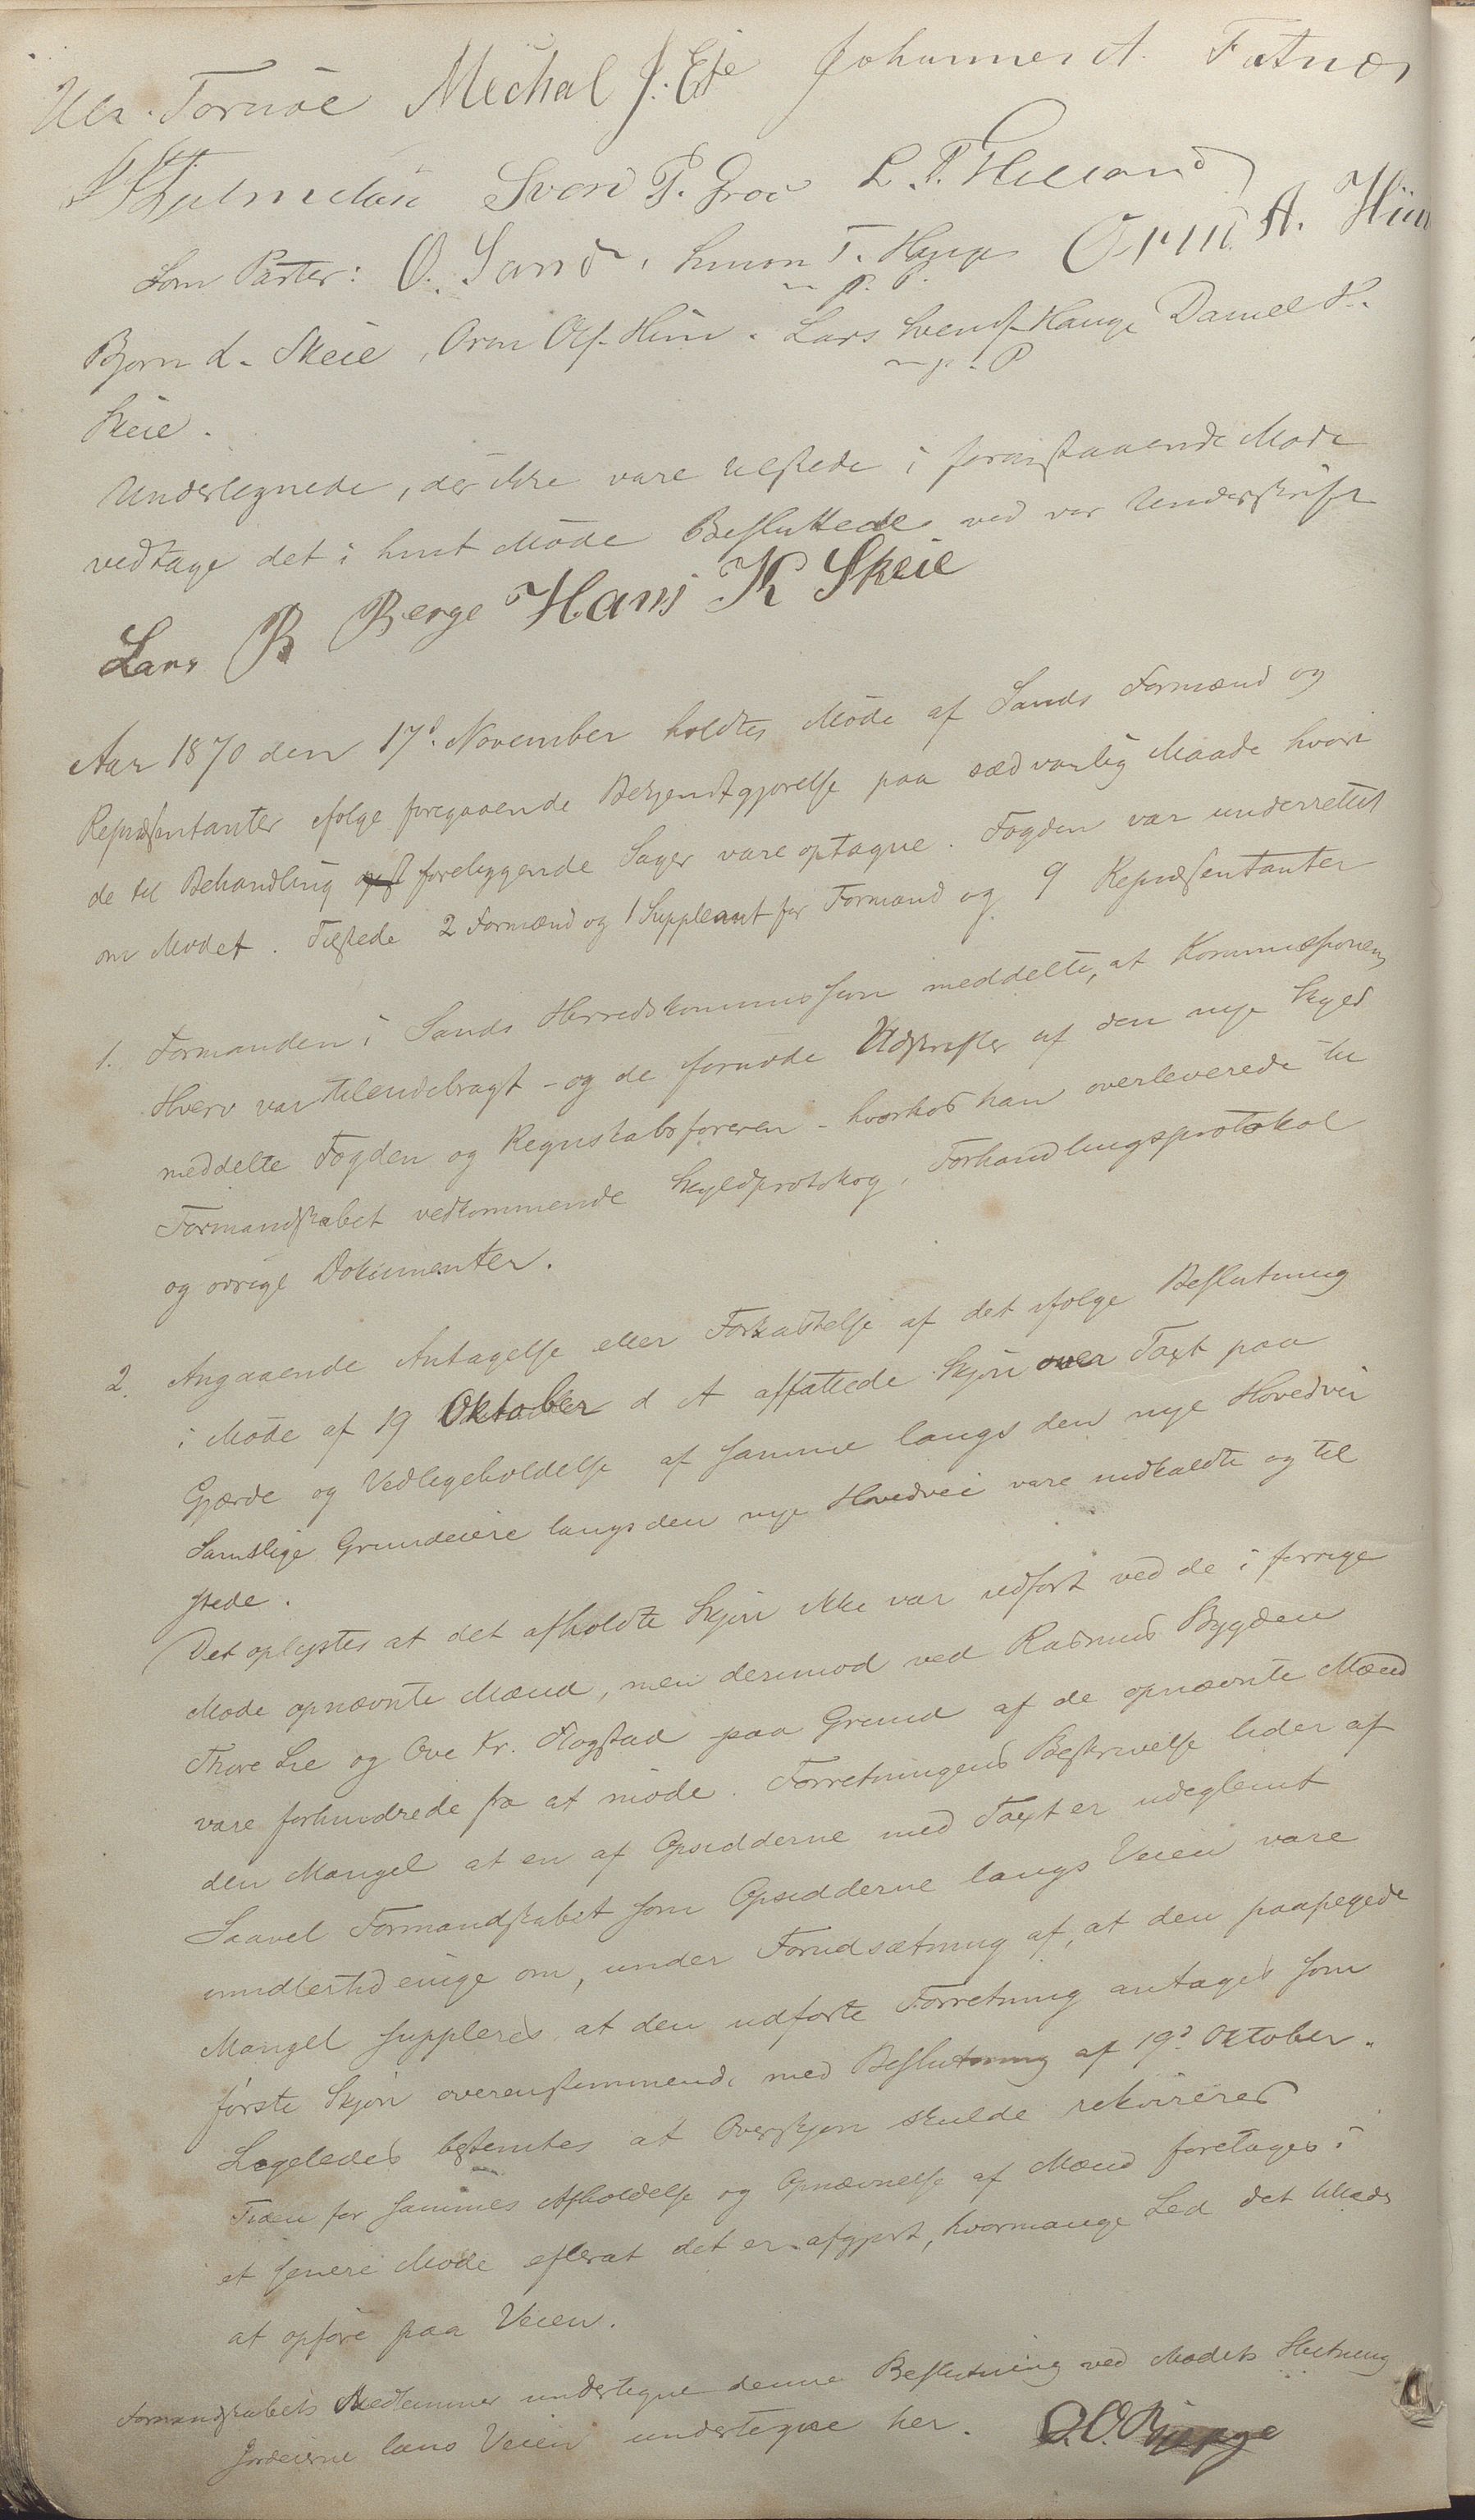 Tornöe Michal J. Eje Johannes A. Fatnæs
Svend P. Groe L. P. Helland
Som Parter: O. Sand, Simon T. Hauge Orm A. Hiim
m. p. P.
Bjørn L. Skeie, Orm Ols. Hiim. Lars Svends. Hauge Daniel H.
m. p. P
Skeie.
Undertegnede, der ikke vare tilstede i foranstaaende Møde
vedtage det i hint Møde Besluttede ved vor Underskrift
Lars B Berge Hans K Skeie
Aar 1870 den 17d. November holdtes Møde af Sands Formænd og
Repræsentanter ifølge foregaaende Bekjendtgjørelse paa sædvanlig Maade hvori
de til Behandling foreliggende Sager vare optagne. Fogden var underrettet
om Mødet. Tilstede 2 Formænd og 1 Suppleant for Formænd og 9 Repræsentanter
1. Formanden i Sands Herredskommission meddelte, at Kommissionens
Hverv var tilendebragt - og de fornødne Udskrifter af den nye Skyld
meddelte Fogden og Regnskabsføreren - hvorhos han overleverede til
Formandskabet vedkommende Skyldprotokog, Forhandlingsprotokol
og øvrige Dokumenter.
2. Angaaende Antagelse eller Forkastelse af det ifølge Beslutning
i Møde af 19 Oktober d A affattede Skjøn over Taxt paa
Gjærde og Vedligeholdelse af samme langs den nye Hovedvei
Samtlige Grundeiere langs den nye Hovedvei vare indkaldte og til
stede.
Det oplystes at det afholdte Skjøn ikke var udført ved de i forrige
Møde opnævnte Mænd, men derimod ved Rasmus Bygden
Thore Lie og Ove Kr. Høgstad paa Grund af de opnævnte Mænd
vare forhindrede fra at møde. Forretningens Beskrivelse lider af
den Mangel at en af Opsidderne med Taxt er udeglemt
Saavel Formandskabet som Opsidderne langs Veien vare
imidlertid enige om, under Forudsætning af, at den paapegede
Mangel suppleres, at den udførte Forretning antages som
første Skjøn overenstemmende med Beslutning af 19d Oktober.
Ligeledes bestemtes at Overskjøn skulde rekvireres
Tiden for sammes Afholdelse og Opnævnelse af Mænd foretages i
et senere Møde efterat det er afgjort, hvormange Led det tillades
at opføre paa Veien.
Formandskabets Medlemmer undertegne denne Beslutning ved Mødets Slutning
Jordeierne langs Veien undertegne her. O. O. Bjørge